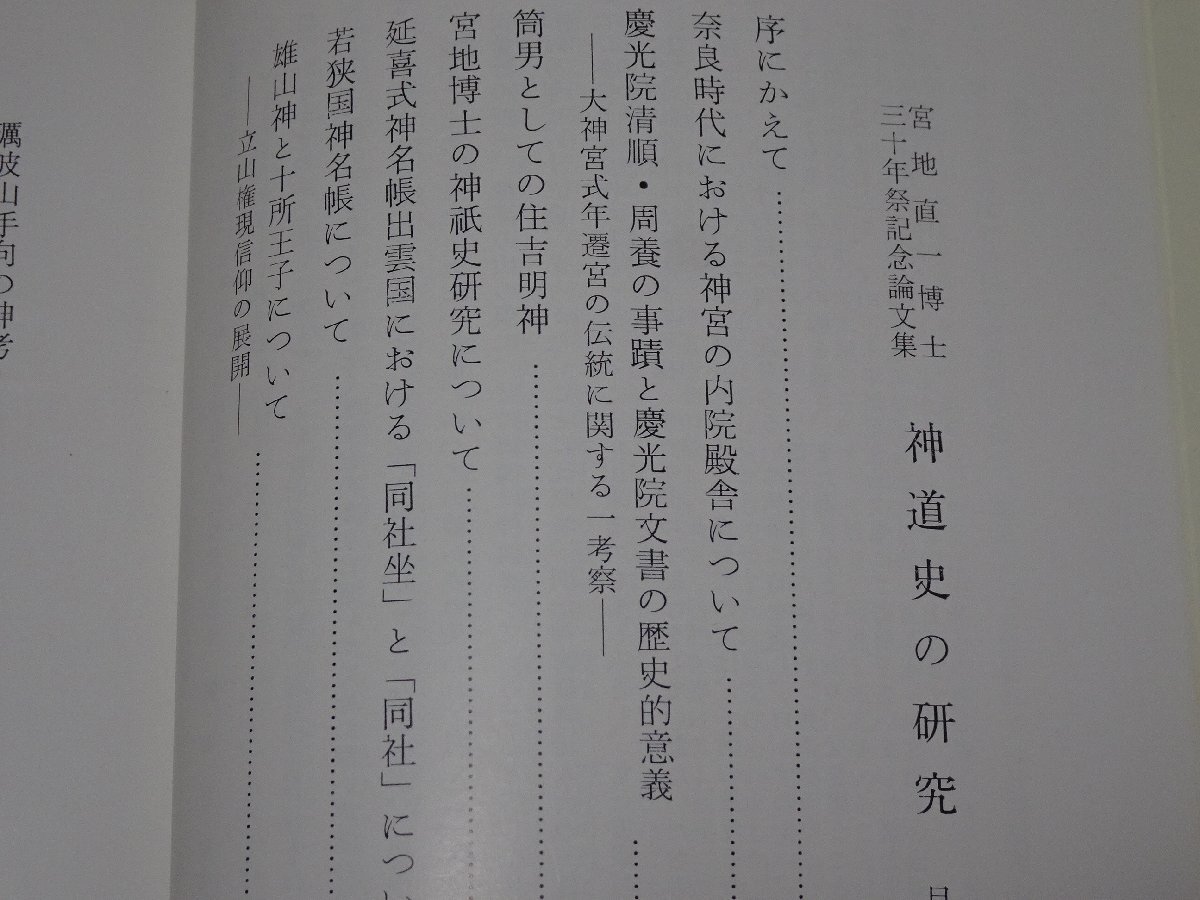 宮地直一博士
三十年祭記念論文集
神道史の研究 目
序にかえて
奈良時代における神宮の内院殿舎について
慶光院清順・周養の事蹟と慶光院文書の歴史的意義
――大神宮式年遷宮の伝統に関する一考察――
筒男としての住吉明神
宮地博士の神祇史研究について
延喜式神名帳出雲国における「同社坐」と「同社」につい
若狭国神名帳について
雄山神と十所王子について
――立山権現信仰の展開――
礪波山手向の神考